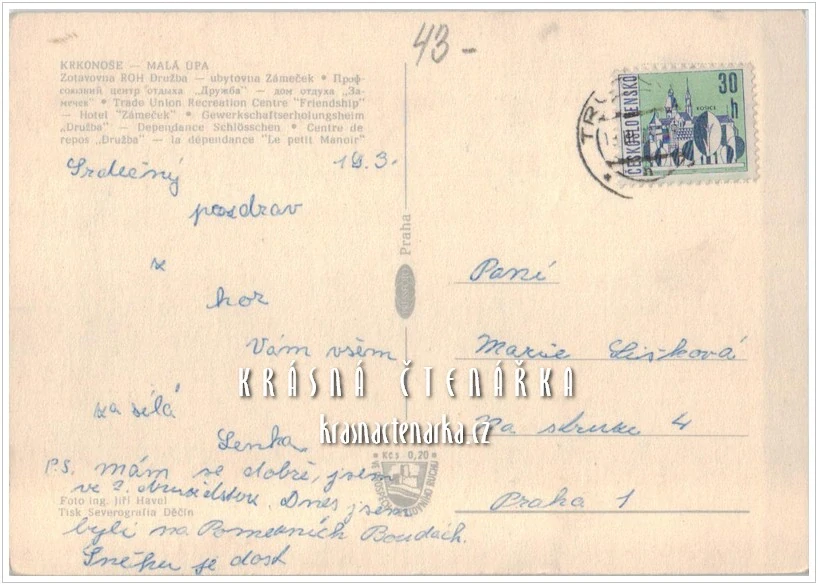 43-
KRKONOŠE — MALÁ ÚPA
Zotavovna ROH Družba — ubytovna Zámeček • Проф-
союзный центр отдыха „Дружба" — дом отдуха „За-
мечек" • Trade Union Recreation Centre "Friendship"
— Hotel "Zámeček" • Gewerkschaftserholungsheim
„Družba" — Dependance Schlösschen • Centre de
repos „Družba" — la dépendance "Le petit Manoir"
ČESKOSLOVENSKO
30 h
KOŠICE
TRU
19.3.
Srdečný
pozdrav
z
hor
Vám všem
zasílá
Lenka
P.S. Mám se dobře, jsem
ve 2. družstvu. Dnes jsem
byli na Pomezních Boudách.
Sněhu je dost
Praha
Paní
Marie Lišková
Na struze 4
Praha 1
KRÁSNÁ ČTENÁŘKA
krasnactenarka.cz
Kčs 0,20
Foto ing. Jiří Havel
Tisk Severografia Děčín